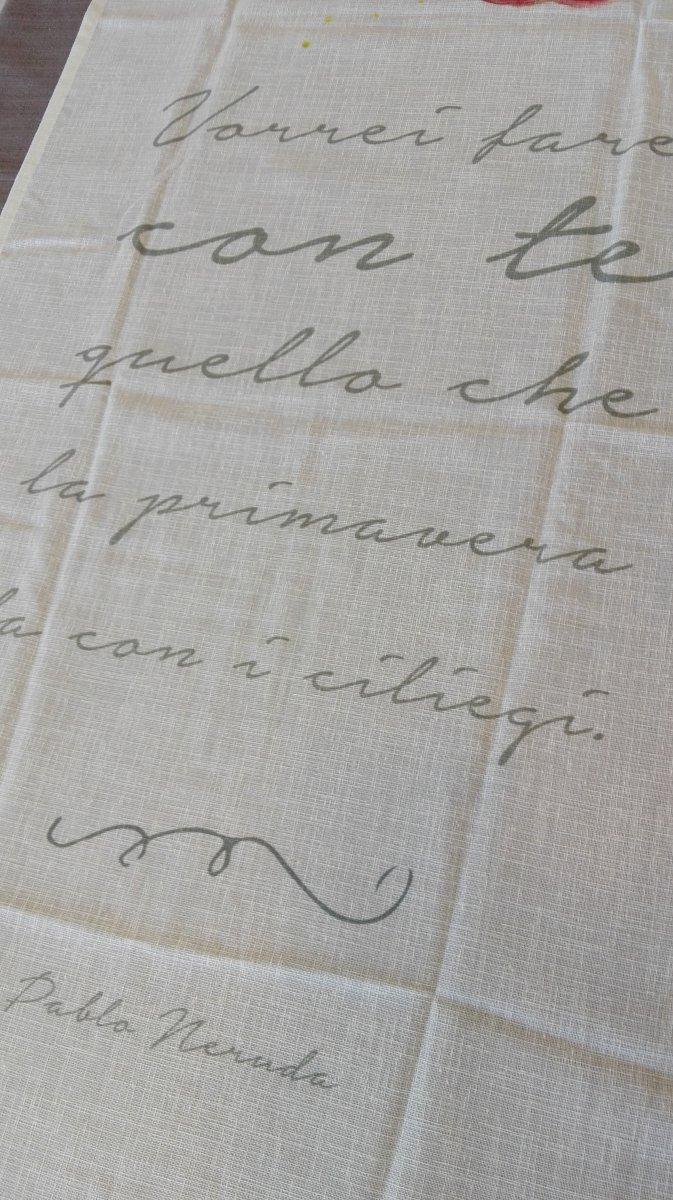 Vorrei fare
con te
quello che
la primavera
fa con i ciliegi.
Pablo Neruda